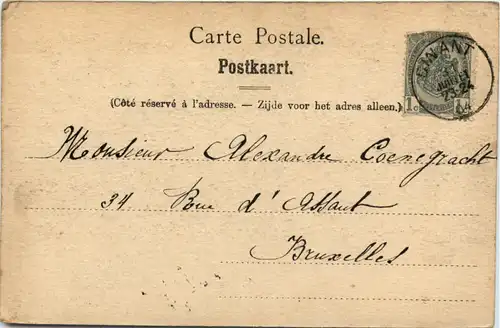 Carte Postale.
Postkaart.
(Côté réservé à l'adresse. — Zijde voor het adres alleen.)
DINANT
JUILLET
23-24
04
1c
Monsieur Alexandre Coenegracht
34 Rue d'Assaut
Bruxelles